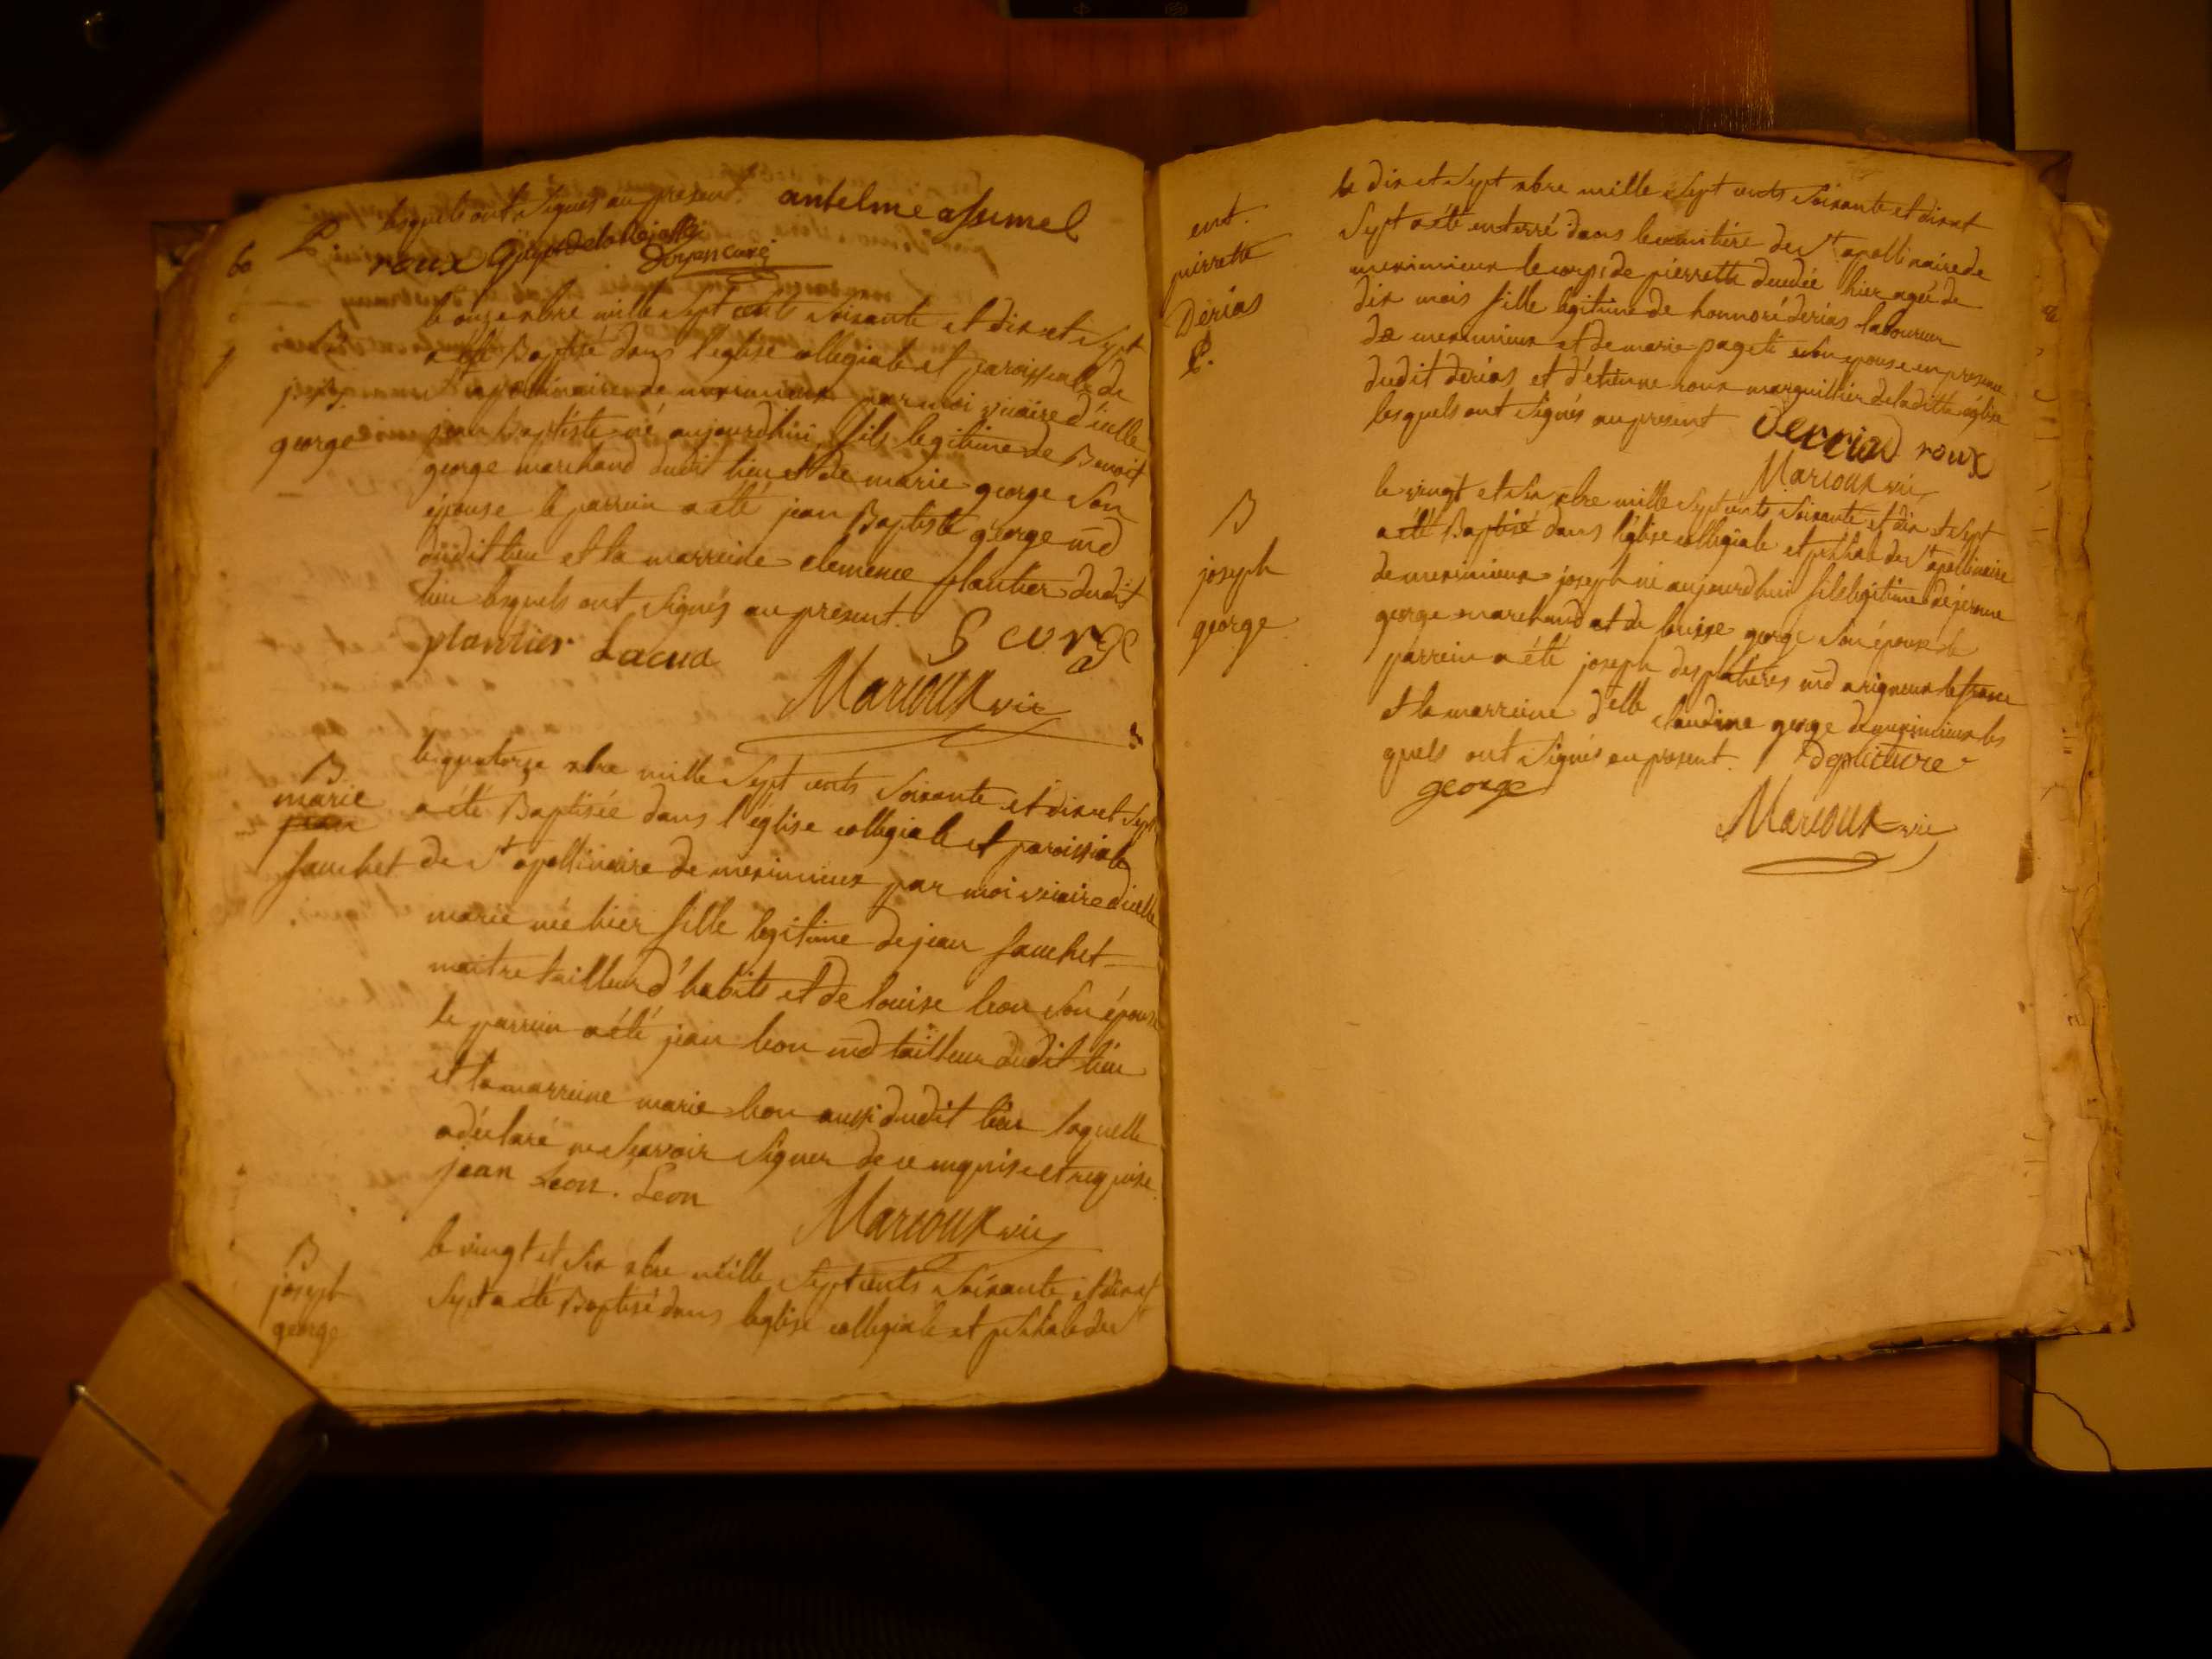 60
P.
lesquels ont signés au present. antelme assumel
roux Guyot de la
Doyen curé
B
george
le onze xbre mille sept cents soixante et dix et sept
a été Baptisé dans l'eglise collegiale et paroissiale de
st apollinaire de meximieux par moi vicaire d'icelle
jean Baptiste né aujourdhui fils legitime de Benoit
george marchand dudit lieu et de marie george son
épouse le parrein a été jean Baptiste george md
dudit lieu et la marreine clemence plantier dudit
lieu lesquels ont signés au present.
plantier Lacua George
Marcoux vic
B
marie
jean
fauchet
le quatorze xbre mille sept cents soixante et dix et sept
a été Baptisée dans l'église collegiale et paroissiale
de st apollinaire de meximieux par moi vicaire d'icelle
marie née hier fille legitime de jean fauchet
maitre tailleur d'habits et de louise leon son épouse
le parrein a été jean leon md tailleur dudit lieu
et la marreine marie leon aussi dudit lieu laquelle
a déclaré ne scavoir signer de ce enquise et requise.
jean Leon. Leon
Marcoux vic
B
joseph
george
le vingt et six xbre mille sept cents soixante et dix et
sept a été Baptisé dans leglise collegiale et pchiale de st
ent.
pierrette
Derias
P.
le dix et sept xbre mille sept cents soixante et dix et
sept a été enterré dans le cimitiére de st apollinaire de
meximieux le corps de pierrette decedée hier agée de
dix mois fille legitime de honnoré derias laboureur
de meximieux et de marie pageti son epouse en presence
dudit derias et d'étienne roux marguillier de la ditte église
lesquels ont signés au present Derriad roux
Marcoux vic
B
joseph
george
le vingt et six xbre mille sept cents soixante et dix et sept
a été Baptisé dans l'église collegiale et pchiale de st apollinaire
de meximieux joseph né aujourdhui fils legitime de jerome
george marchand et de louise george son épouse le
parrein a été joseph desplatieres md a rigneux le franc
et la marreine delle claudine george de meximieux les
quels ont signés au present. Deplictiere
george
Marcoux vic